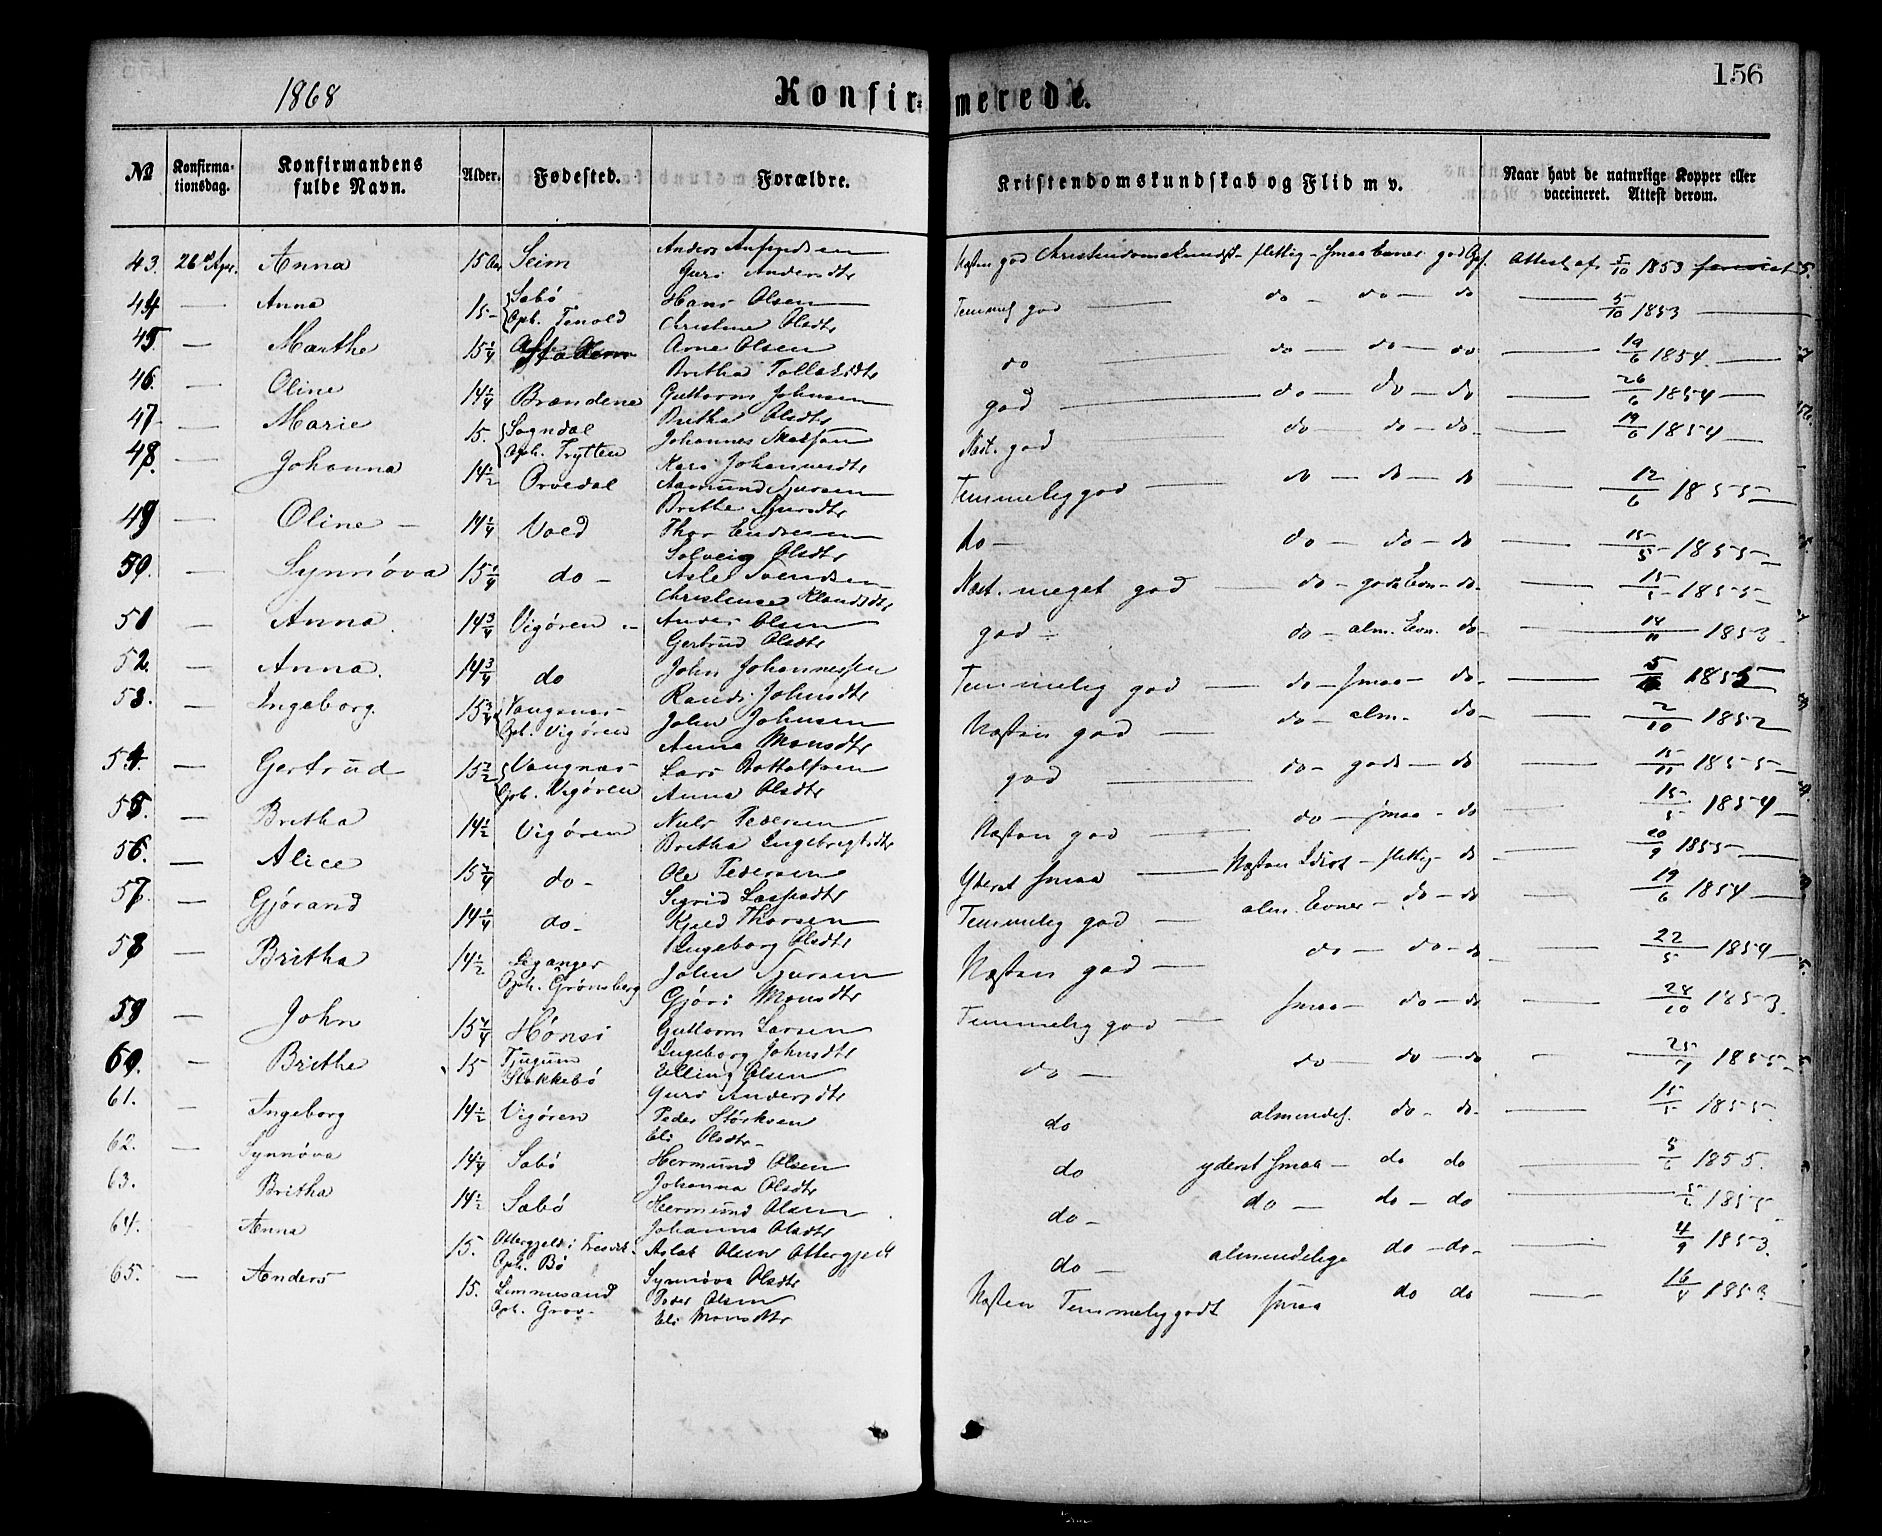 1868 Konfirmerede. 156
№ Konfirmationsdag. Konfirmandens fulde Navn. Alder. Fødested. Forældre. Kristendomskundskab og Flid m v. Naar havt de naturlige Kopper eller vaccineret. Attest derom.
43. 26de Apr. Anna 15 Aar Seim Anders Guro Andersdtr Næsten god Christendomskundsk. flittig - smaa Evner god Opf. Attest af 5/10 1853
44 — Anna 15 - Sabø Oph. Tenold Hans Olsen Christine Olsdtr Temmel god — do — do — do — 5/10 1853 —
45. — Marthe 15 1/4 Arne Olsen Britha do — do — do — do — 19/6 1854. —
46. — Oline 14 1/4 Brændene Guttorm Johnsen Britha Olsdtr god — do — do — do — 26/6 1854 —
47 — Marie 15. Sogndal Oph. Frytten Johannes Kari Johannesdtr Næst. god do — do — do — 19/6 1854 —
48. — Johanna 14 1/2 Ørvedal Aamund Sjursen Brithe Sjursdtr Temmelig god — do — do — do — 12/6 1855 —
49 — Oline — 14 1/4 Vold Thor Endresen Solveig Olsdtr do — do — do — do — 15/5 1855 —
50. — Synnøva 15 1/4 do — Asle Svendsen Christense Næst. meget god — do — gode Evn — do — 15/5 1855 —
51 — Anna. 14 3/4 Vigøren — Anders Olsen Gertrud Olsdtr god — do — alm. Evn. do — 14/11 1853
52. — Anna. 14 3/4 do John Johannessen Randi Johnsdtr Temmelig god — do — smaa — do — 1853
53. — Ingeborg. 15 3/4 Vangsnes Oph. Vigøren John Johnsen Anna Monsdtr Næsten god — do — alm. do — 2/10 1852
54. — Gertrud 15 1/2 Vangnæs Oph. Vigøren Lars Botolfsen Anna Olsdtr god — do — gode — do — 15/11 1855 —
55. — Britha 14 1/2 Vigøren Niels Pedersen Britha Ingebrigtsdtr Næsten god — do — smaa — do — 15/5 1854 —
56. — Alice 15 3/4 do — Ole Pedersen Sigrid Lassesdtr Yderst smaa — Næsten Idiot — flittig — do — 20/9 1855 —
57. — Gjørand 14 1/4 do — Kjeld Thorsen Ingeborg Olsdtr Temmelig god — alm. Evner — do — do — 19/6 1854 —
58 — Britha 14 1/2 Leganger Oph. Grønsberg John Sjursen Gjøri Monsdtr Næsten god — do — do — do — 22/5 1854 —
59 — John 15 3/4 Hønsi Guttorm Larsen Ingeborg Johnsdtr Temmelig god — smaa — do — do — 24/10 1853.
60. — Brithe 15 Tjugum Stokkebø Elling Olsen Guro Andersdtr do — do — do — do — 1855 —
61. — Ingeborg 14 1/2 Vigøren Peder Størksen Eli Olsdtr — do almindel. do — do — 15/5 1855.
62. — Synnøva 14 1/4 Sabø Hermund Olsen Johanna Olsdtr do yderst smaa — do do — 5/6 1855.
63. Britha 14 1/2 Sabø Hermund Olsen Johanna Olsdtr do — do — do — do — 1855
64. — Anna 15. Ottergjeld i Fresvik Oph. Bø Aslak Olsen Ottergjeld Synnøva Olsdtr do — almindelige do — do — 4/9 1853.
65. — Anders 15. Limmesand Oph. Grov — Peder Olsen Eli Monsdtr Næsten Temmelig godt smaa do do — 16/4 1853